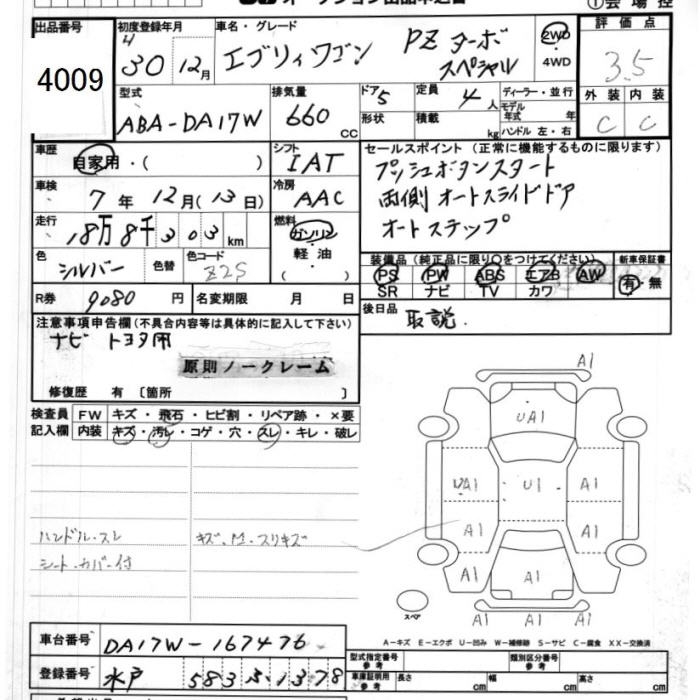 オークション出品申込書
① 会場控
出品番号
4009
初度登録年月
30 12月
車名・グレード
エブリィワゴン PZ ターボ スペシャル
2WD
4WD
評価点
3.5
外装 内装
C C
型式
ABA-DA17W
排気量
660 cc
ドア 5
形状
定員 4 人
積載 kg
ディーラー・並行
モデル年式 年
ハンドル 左・右
車歴
自家用・( )
シフト
IAT
セールスポイント (正常に機能するものに限ります)
プッシュボタンスタート
両側 オートスライドドア
オートステップ
車検
7年 12月(13日)
冷房
AAC
走行
18万8千303km
燃料
ガソリン
軽油
( )
色
シルバー
色替
色コード
Z2S
装備品 (純正品に限り○をつけてください)
PS PW ABS エアB AW
SR ナビ TV カワ
新車保証書
有・無
R券 9080 円
名変期限 月 日
後日品
取説.
注意事項申告欄 (不具合内容等は具体的に記入して下さい)
ナビ トヨタ用
原則ノークレーム
修復歴 有 〔箇所 〕
検査員記入欄
FW キズ・飛石・ヒビ割・リペア跡・×要
内装 キズ・汚レ・コゲ・穴・スレ・キレ・破レ
ハンドル・スレ
シート・カバー付
A1
UA1
A1 U1 A1
A1 A1
A1 A1 A1
A1 A1 A1
スペア
A-キズ E-エクボ U-凹み W-補修跡 S-サビ C-腐食 XX-交換済
車台番号
DA17W-167476
登録番号
水戸 583
型式指定番号 参考
類別区分番号 参考
車庫証明用 参考
長さ cm
幅 cm
高さ cm